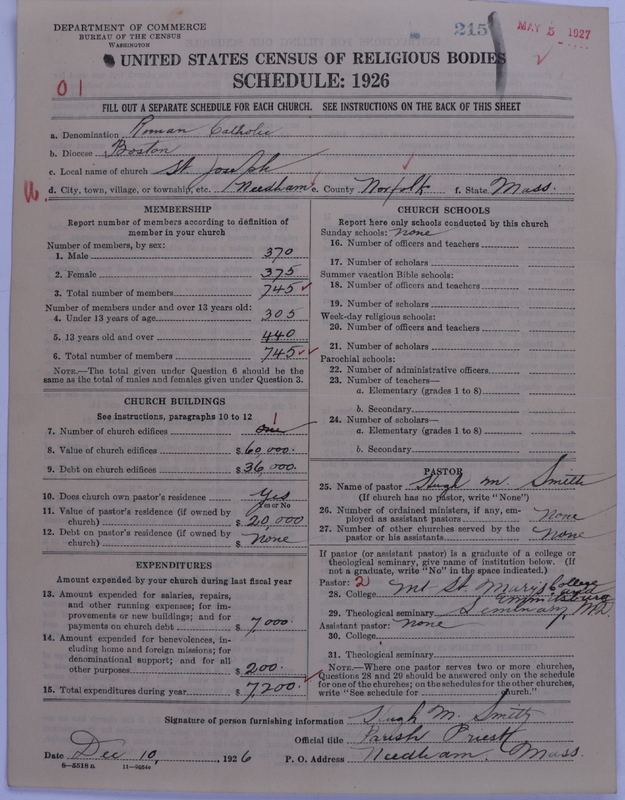 DEPARTMENT OF COMMERCE
BUREAU OF THE CENSUS
WASHINGTON
215
MAY 5 1927
UNITED STATES CENSUS OF RELIGIOUS BODIES
SCHEDULE: 1926
01
FILL OUT A SEPARATE SCHEDULE FOR EACH CHURCH. SEE INSTRUCTIONS ON THE BACK OF THIS SHEET
a. Denomination Roman Catholic
b. Diocese Boston
c. Local name of church St. Joseph
d. City, town, village, or township, etc. Needham e. County Norfolk f. State Mass.
MEMBERSHIP
Report number of members according to definition of
member in your church
Number of members, by sex:
1. Male 370
2. Female 375
3. Total number of members 745
Number of members under and over 13 years old:
4. Under 13 years of age 305
5. 13 years old and over 440
6. Total number of members 745
NOTE.—The total given under Question 6 should be the
same as the total of males and females given under Question 3.
CHURCH BUILDINGS
See instructions, paragraphs 10 to 12
7. Number of church edifices one 1
8. Value of church edifices $ 60,000.
9. Debt on church edifices $ 36,000.
10. Does church own pastor's residence Yes
Yes or No
11. Value of pastor's residence (if owned by
church) $ 20,000
12. Debt on pastor's residence (if owned by
church) $ none
EXPENDITURES
Amount expended by your church during last fiscal year
13. Amount expended for salaries, repairs,
and other running expenses; for im-
provements or new buildings; and for
payments on church debt $ 7,000.
14. Amount expended for benevolences, in-
cluding home and foreign missions; for
denominational support; and for all
other purposes $ 200.
15. Total expenditures during year $ 7,200.
CHURCH SCHOOLS
Report here only schools conducted by this church
Sunday schools: None
16. Number of officers and teachers
17. Number of scholars
Summer vacation Bible schools:
18. Number of officers and teachers
19. Number of scholars
Week-day religious schools:
20. Number of officers and teachers
21. Number of scholars
Parochial schools:
22. Number of administrative officers
23. Number of teachers—
a. Elementary (grades 1 to 8)
b. Secondary
24. Number of scholars—
a. Elementary (grades 1 to 8)
b. Secondary
PASTOR
25. Name of pastor Hugh M. Smith
(If church has no pastor, write "None")
26. Number of ordained ministers, if any, em-
ployed as assistant pastors None
27. Number of other churches served by the
pastor or his assistants None
If pastor (or assistant pastor) is a graduate of a college or
theological seminary, give name of institution below. (If
not a graduate, write "No" in the space indicated.)
Pastor: 2
28. College Mt St. Mary's College and
Emmitsburg
29. Theological seminary Seminary, Md.
Assistant pastor: None
30. College
31. Theological seminary
NOTE.—Where one pastor serves two or more churches,
Questions 28 and 29 should be answered only on the schedule
for one of the churches; on the schedules for the other churches,
write "See schedule for church."
Signature of person furnishing information Hugh M. Smith
Official title Parish Priest
Date Dec 10, 1926 P. O. Address Needham, Mass.
8—5518 a